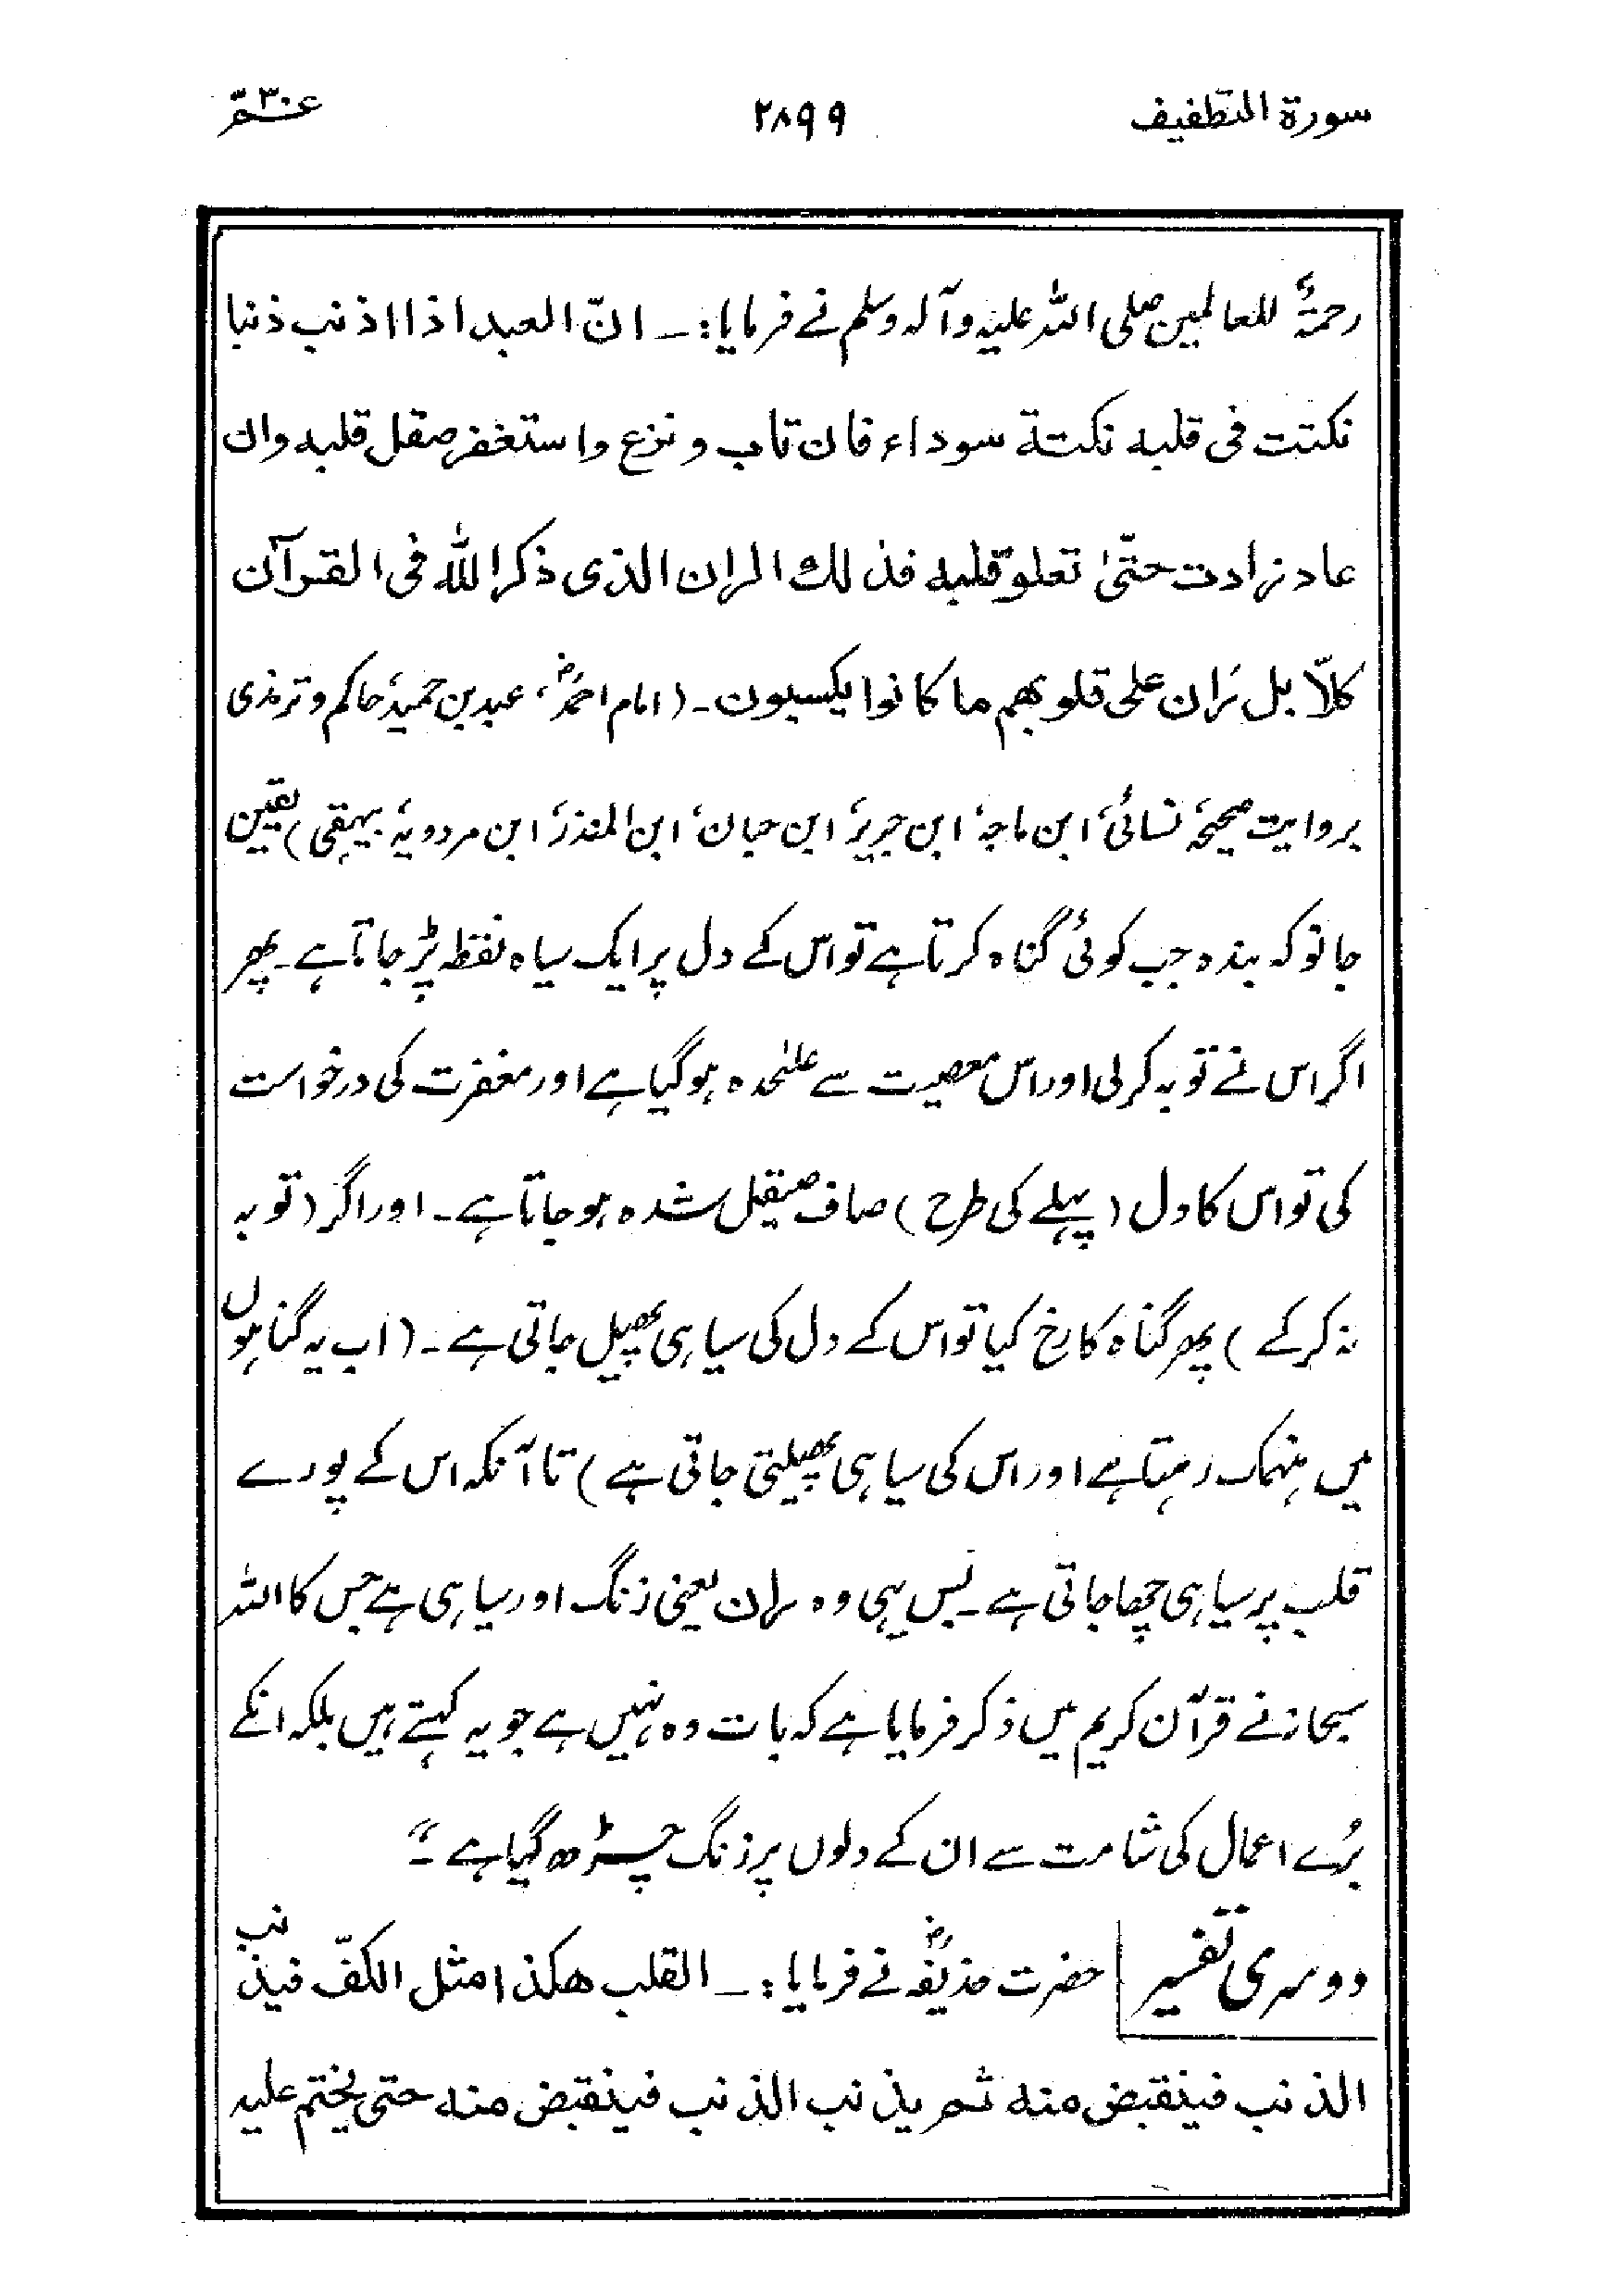 سورة التطفیف ۲۸۹۹ عمّ ۳۰
رحمۃٌ للعالمین صلی اللہ علیہ وآلہ وسلم نے فرمایا :۔ انّ العبد اذا اذنب ذنبا
نکتت فی قلبہ نکتة سوداء فان تاب و نزع واستغفر صقل قلبہ وان
عاد زادت حتّیٰ تعلو قلبہ فذلك الران الذی ذکر اللّٰہ فی القرآن
کلّا بل رَان علی قلوبھم ما کانوا یکسبون ۔ (امام احمدؒ، عبد بن حمید، حاکم و ترمذی
بروایت صحیحہ، نسائی، ابن ماجہ، ابن جریر، ابن حبان، ابن المنذر، ابن مردویہ، بیہقی) یقین
جانو کہ بندہ جب کوئی گناہ کرتا ہے تو اس کے دل پر ایک سیاہ نقطہ پڑ جاتا ہے ۔ پھر
اگر اس نے توبہ کر لی اور اس معصیت سے علیٰحدہ ہو گیا ہے اور مغفرت کی درخواست
کی تو اس کا دل (پہلے کی طرح) صاف صیقل شدہ ہو جاتا ہے ۔ اور اگر (توبہ
نہ کر کے) پھر گناہ کا رخ کیا تو اس کے دل کی سیاہی پھیل جاتی ہے ۔ (اب یہ گناہوں
میں منہمک رہتا ہے اور اس کی سیاہی پھیلتی جاتی ہے) تا آنکہ اس کے پورے
قلب پر سیاہی چھا جاتی ہے ۔ بس یہی وہ ران یعنی زنگ اور سیاہی ہے جس کا اللہ
سبحانہ نے قرآن کریم میں ذکر فرمایا ہے کہ بات وہ نہیں ہے جو یہ کہتے ہیں بلکہ انکے
بُرے اعمال کی شامت سے ان کے دلوں پر زنگ چڑھ گیا ہے ۔"
دوسری تفسیر حضرت حذیفہؓ نے فرمایا :۔ القلب ھکذا مثل الکفّ فیذنب
الذنب فینقبض منہ ثم یذنب الذنب فینقبض منہ حتی یختم علیہ